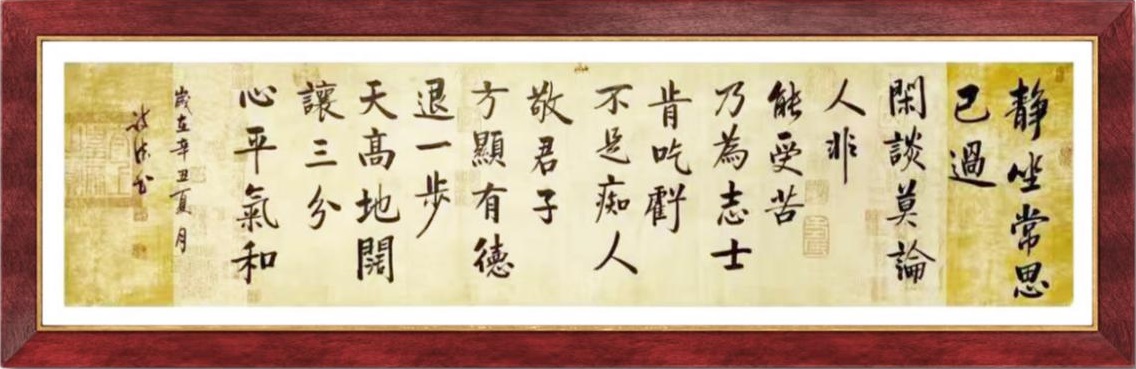 靜坐常思
己過
閑談莫論
人非
能受苦
乃為志士
肯吃虧
不是痴人
敬君子
方顯有德
退一步
天高地闊
讓三分
心平氣和
歲在辛丑夏月